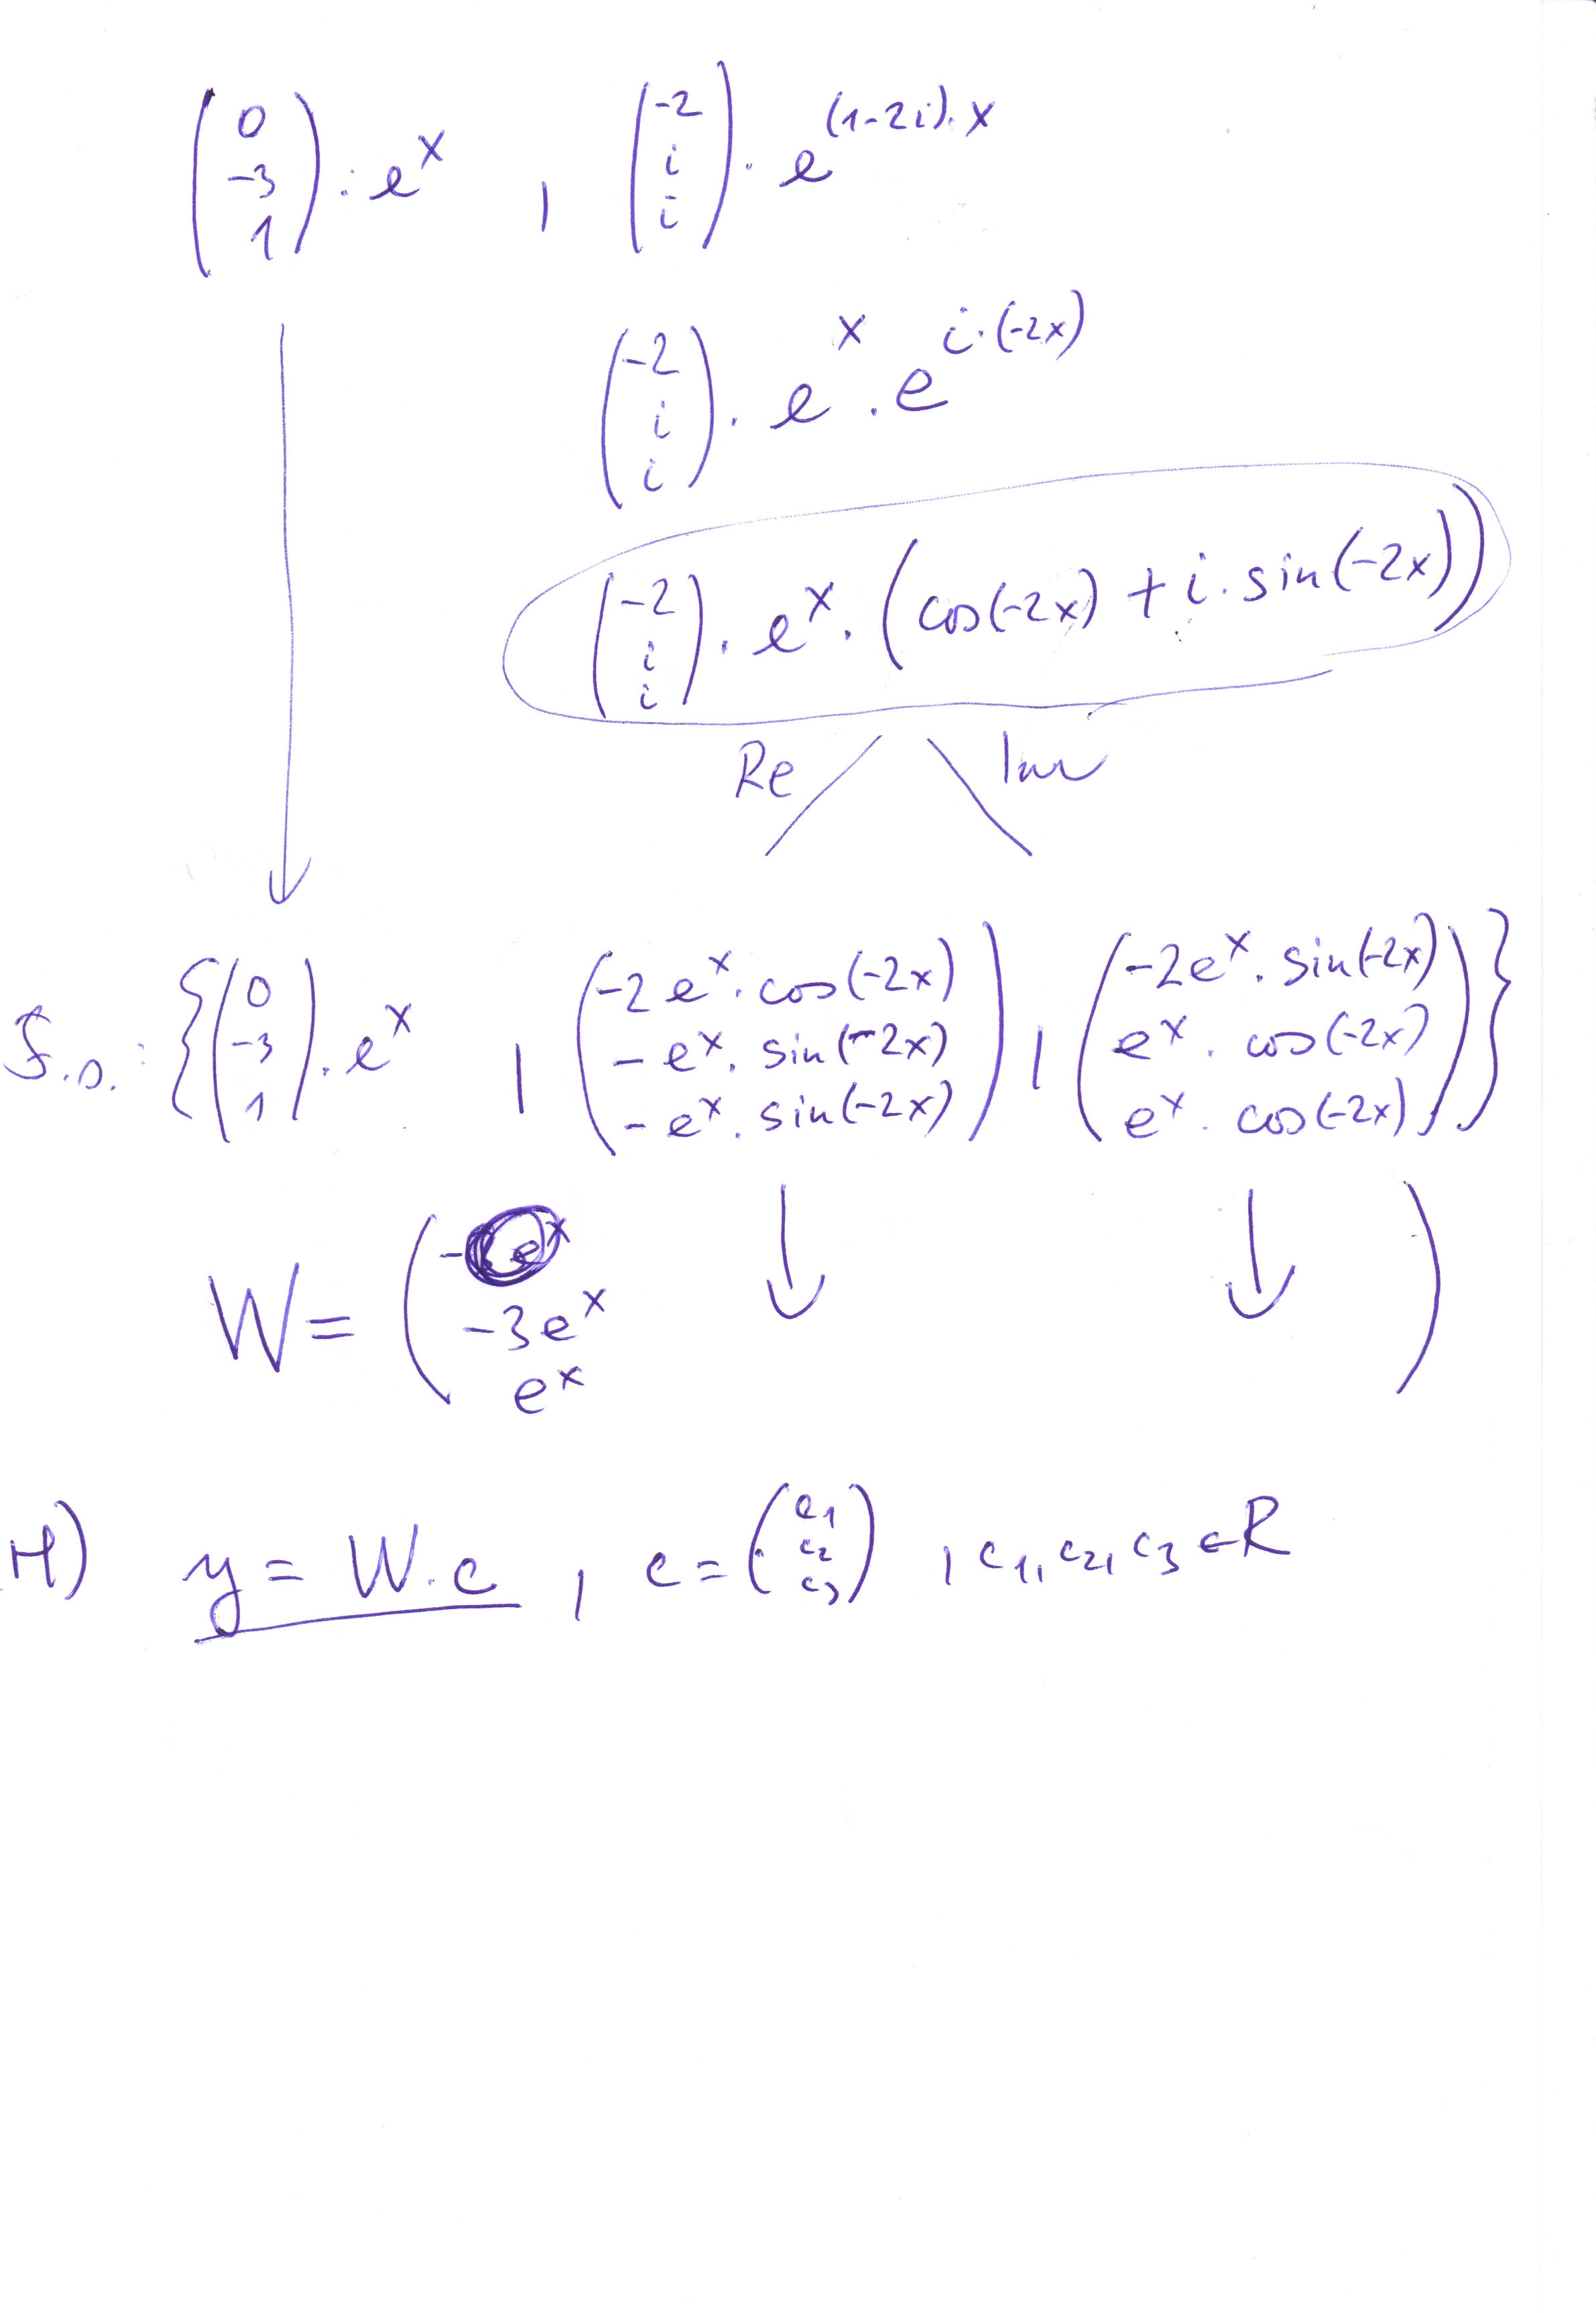 (0 -3 1) · e^x , (-2 i i) · e^(1-2i)·x
(-2 i i) · e^x · e^i·(-2x)
(-2 i i) · e^x · (cos(-2x) + i · sin(-2x))
Re Im
f.s.: {(0 -3 1) · e^x , (-2e^x · cos(-2x) -e^x · sin(-2x) -e^x · sin(-2x)) , (-2e^x · sin(-2x) e^x · cos(-2x) e^x · cos(-2x))}
W = (0 -3e^x e^x ↓ ↓)
H) y = W·c , c = (c1 c2 c3) , c1, c2, c3 ∈ R